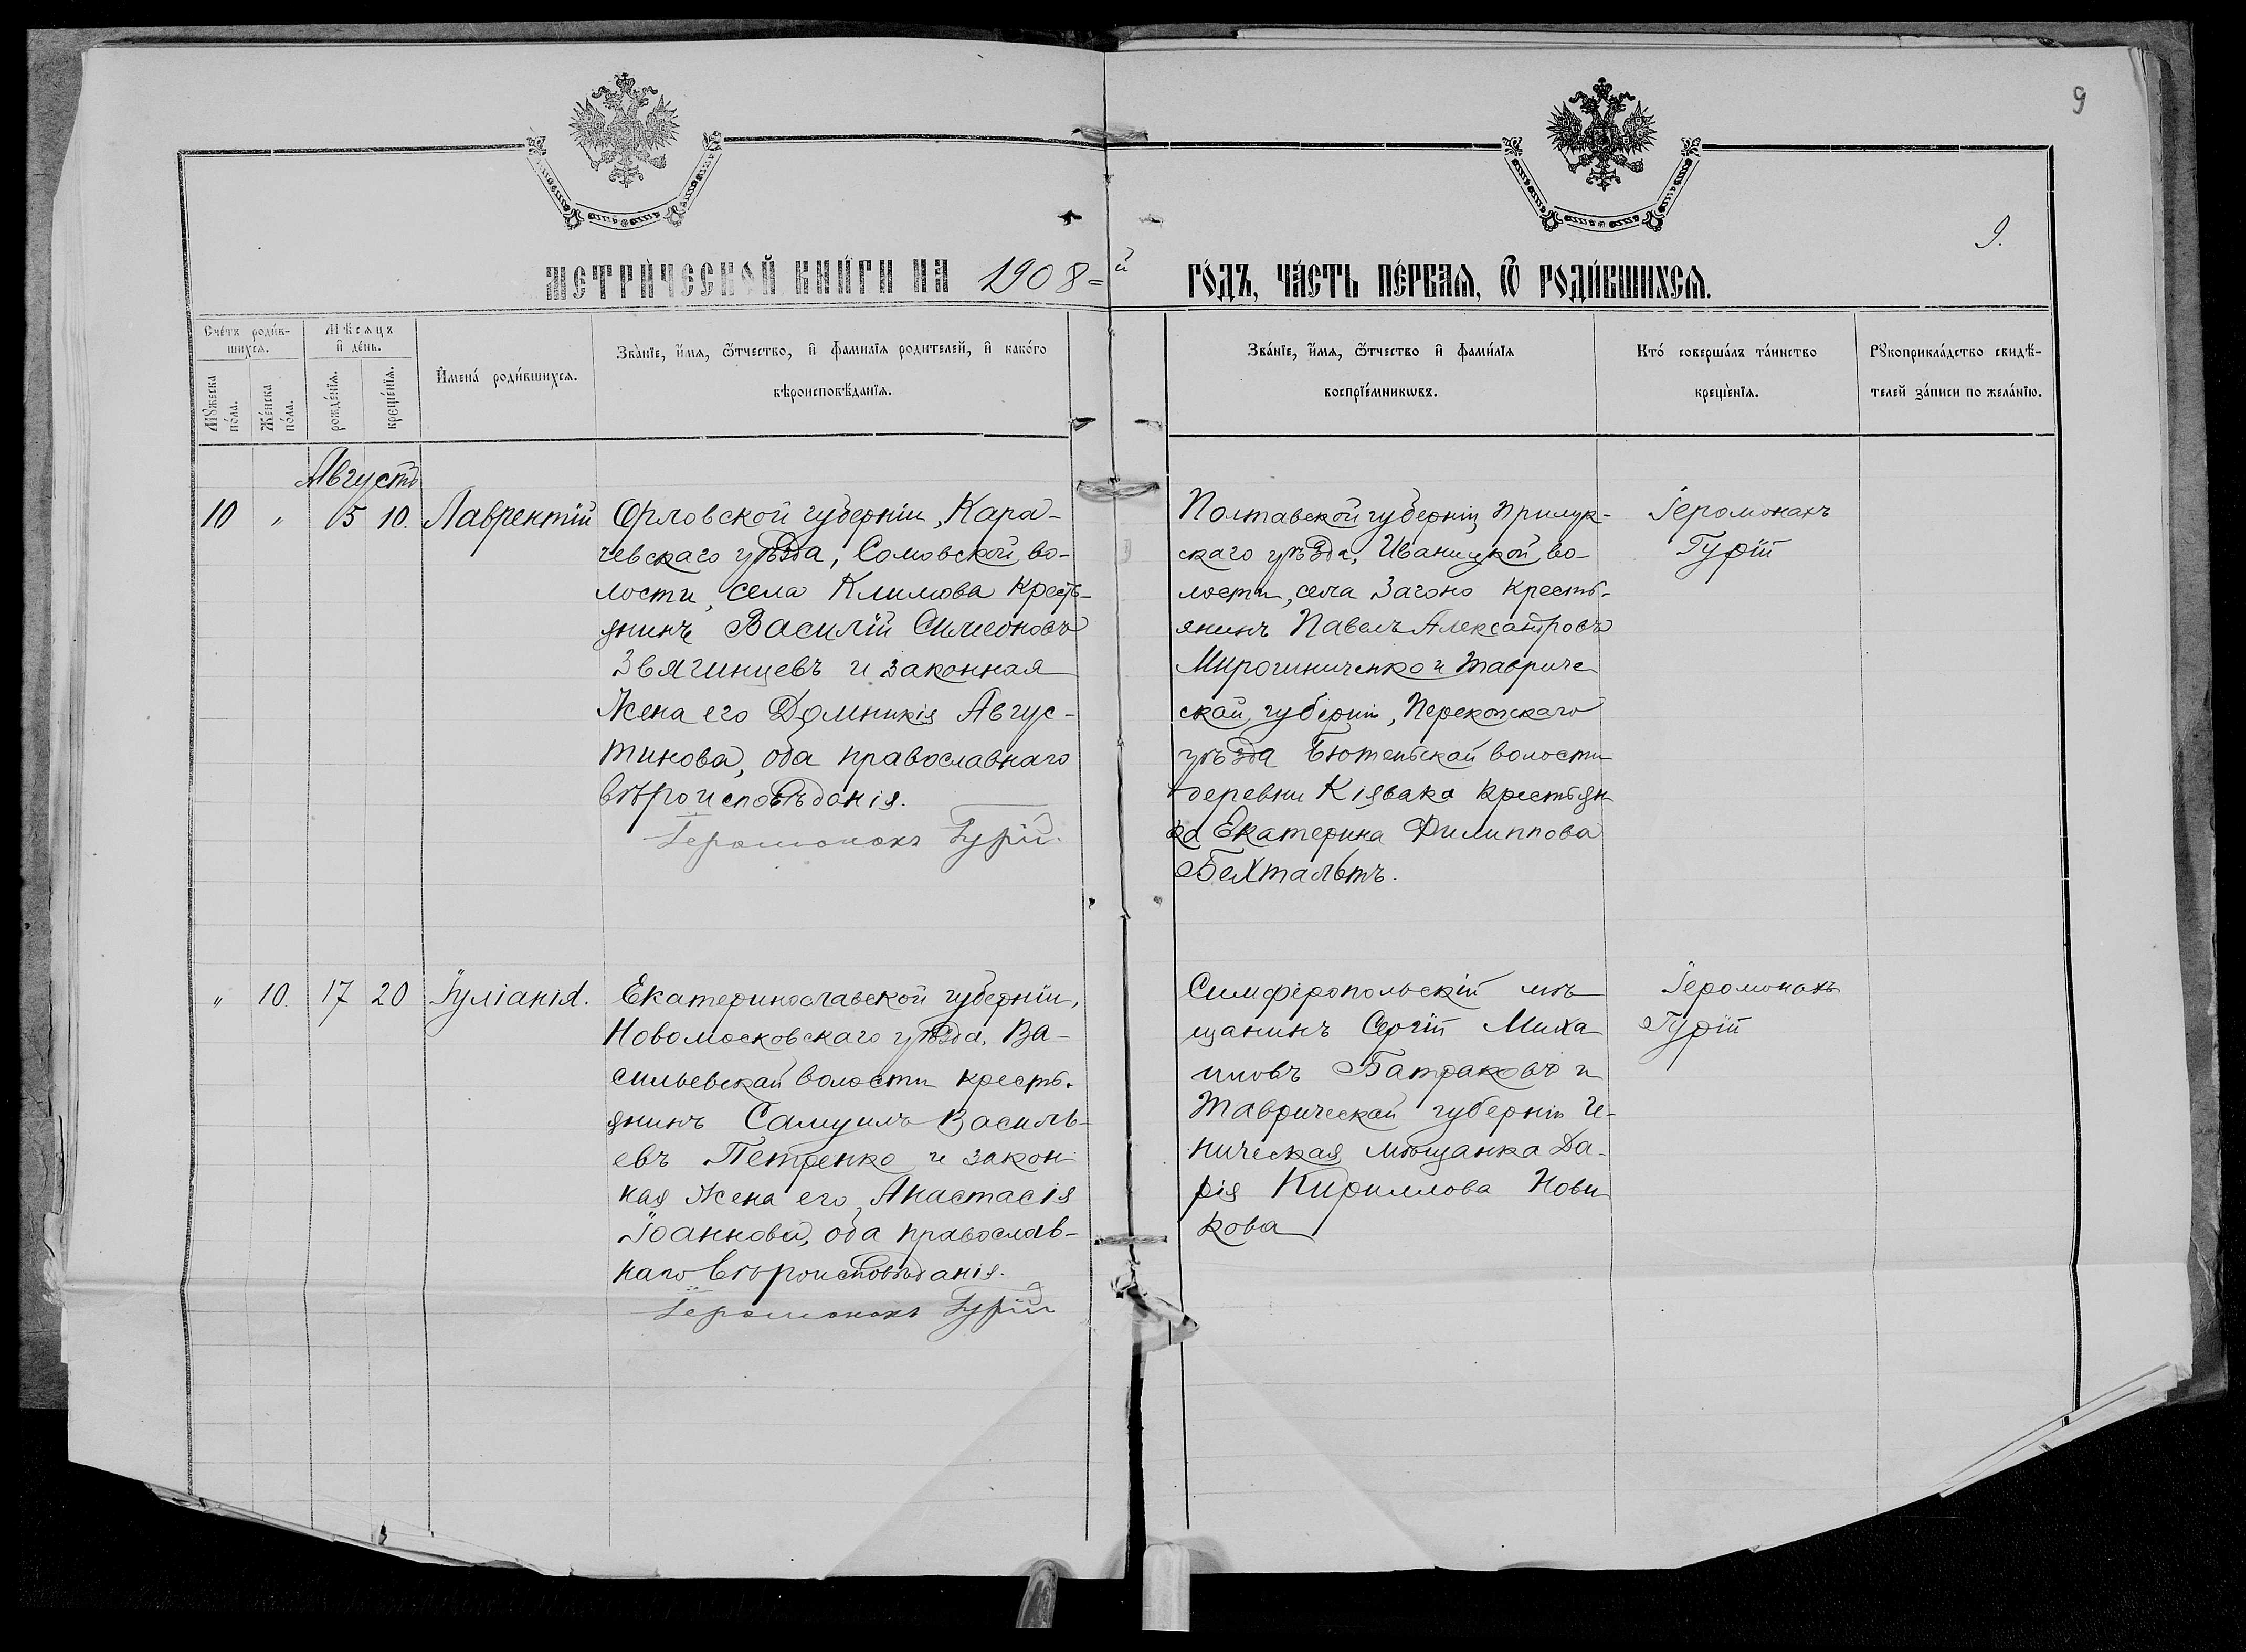 9
9.
МЕТРИ́ЧЕСКОЙ КНИ́ГИ НА 1908=й ГО́ДЪ, ЧА́СТЬ ПЕ́РВАѦ, Ѿ РОДИ́ВШИХСѦ.
Сче́тъ роди́в-
шихсѧ.
Мꙋжеска по́ла.
Же́нска по́ла.
Мѣ́сѧцъ
и҆ де́нь.
рожде́нїѧ.
креще́нїѧ.
И҆мена́ роди́вшихсѧ.
Зва́нїе, и҆́мѧ, ѻ҆́тчество, и҆ фамилїѧ родителей, и҆ како́гѡ
вѣроисповѣ́данїѧ.
Зва́нїе, и҆́мѧ, ѻ҆́тчество и҆ фами́лїѧ
воспрїе́мникѡвъ.
Кто́ соверша́лъ та́инство
креще́нїѧ.
Рꙋкоприкла́дство свидѣ́-
телей за́писи по жела́нїю.
Августъ
10 " 5 10. Лаврентій
Орловской губерніи, Кара-
чевскаго уѣзда, Сомовской во-
лости, села Климова кресть-
янинъ Василій Симеоновъ
Звягинцевъ и законная
жена его Домникія Авгус-
тинова, оба православнаго
вѣроисповѣданія.
Іеромонахъ Гурій.
Полтавской губерніи Прилук-
скаго уѣзда, Иваницкой во-
лости, села Загоно кресть-
янинъ Павелъ Александровъ
Мирошниченко и Тавриче
ской губерніи, Перекопскаго
уѣзда Бютеньской волости
деревни Кіявака крестьян
ка Екатерина Филиппова
Бехтальтъ.
Іеромонахъ
Гурій
" 10. 17 20 Іуліанія.
Екатеринославской губерніи,
Новомосковскаго уѣзда, Ва-
сильевской волости кресть-
янинъ Самуилъ Василь-
евъ Петренко и закон
ная жена его Анастасія
Іоаннова, оба православ-
наго вѣроисповѣданія.
Іеромонахъ Гурій
Симферопольскій мѣ
щанинъ Сергій Миха
иловъ Батраковъ и
Таврической губерніи Ге-
ническая мѣщанка Да-
рія Кириллова Нови
кова
Іеромонахъ
Гурій